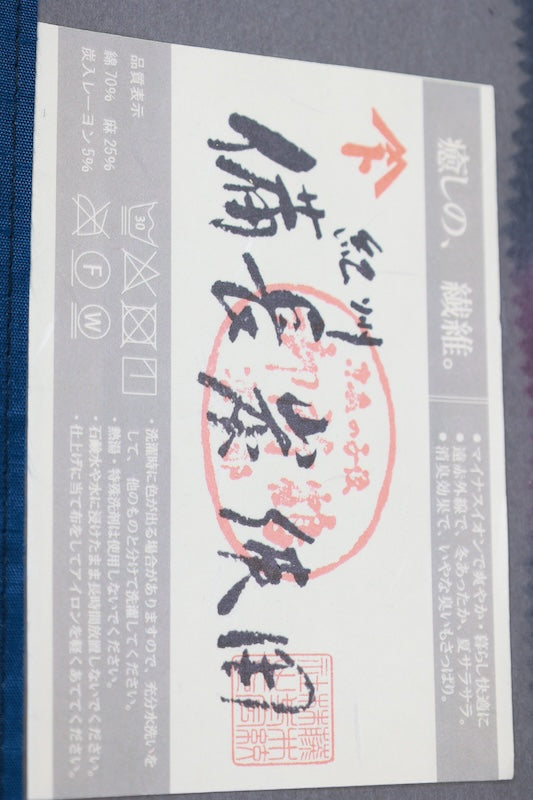 癒しの、繊維。
・マイナスイオンで爽やか・暮らし快適に
・遠赤外線で、冬あったか、夏サラサラ。
・消臭効果で、いやな臭いもさっぱり。
紀州
備長炭使用
品質表示
綿 70% 麻 25%
炭入レーヨン 5%
30
F
W
・洗濯時に色が出る場合がありますので、充分水洗いを
して、他のものと分けて洗濯してください。
・熱湯・特殊洗剤は使用しないでください。
・石鹸水や水に浸けたまま長時間放置しないでください。
・仕上げに当て布をしてアイロンを軽くあててください。